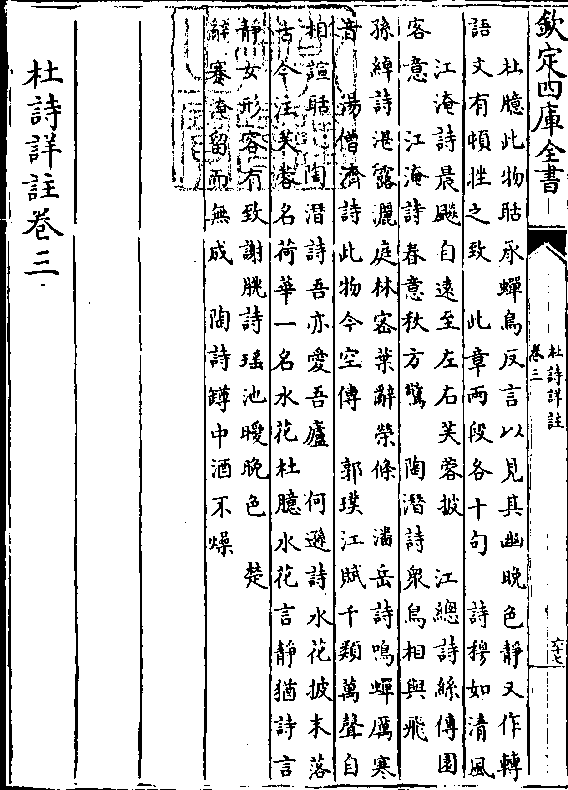 欽定四庫全書
杜詩詳註
卷三
六十七
杜臆此物聒承蟬鳥反言以見其幽晚色靜又作轉
語文有頓挫之致　此章兩段各十句　詩穆如清風
江淹詩晨飈自遠至左右芙蓉披　江總詩絲傳園
客意　江淹詩春意秋方驚　陶潛詩衆鳥相與飛
孫綽詩湛露灑庭林密葉辭榮條　潘岳詩鳴蟬厲寒
音　湯僧濟詩此物今空傳　郭璞江賦千類萬聲自
相諠聒　陶潛詩吾亦愛吾廬　何遜詩水花披未落
古今注芙蓉名荷華一名水花杜臆水花言靜猶詩言
靜女形容有致謝朓詩瑶池曖晚色　楚
辭蹇淹留而無成　陶詩罇中酒不燥
杜詩詳註卷三